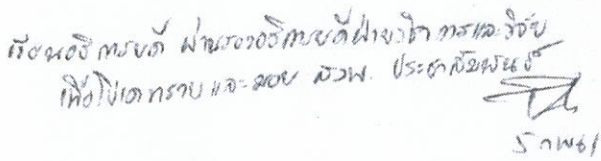 เรียนอธิการบดี ผ่านรองอธิการบดีฝ่ายวิชาการและวิจัย
เพื่อโปรดทราบและมอบ สวพ. ประชาสัมพันธ์
5 กพ61